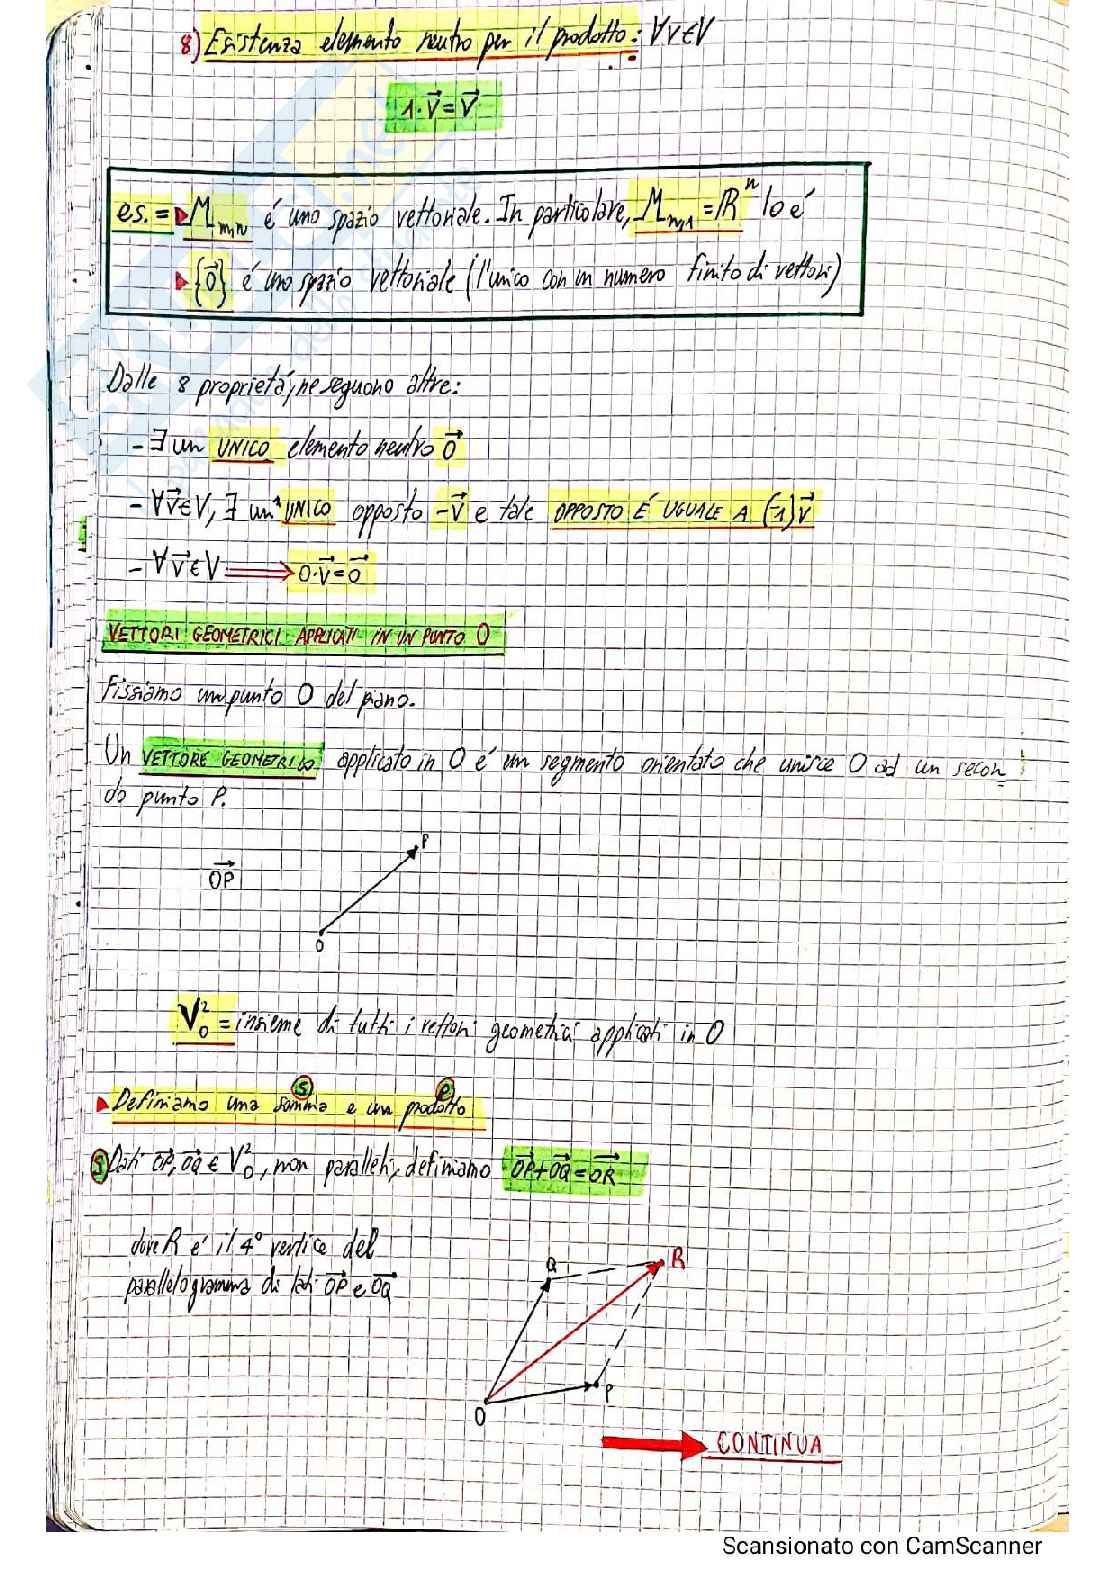 8) Esistenza elemento neutro per il prodotto: ∀v∈V
1·v⃗=v⃗
es.= ▶ M_{m,n} é uno spazio vettoriale. In particolare, M_{n,1} = ℝⁿ lo é
▶ {0⃗} é uno spazio vettoriale (l'unico con un numero finito di vettori)
Dalle 8 proprietá, ne seguono altre:
- ∃ un UNICO elemento neutro 0⃗
- ∀v⃗∈V, ∃ un UNICO opposto -v⃗ e tale OPPOSTO É UGUALE A (-1)v⃗
- ∀v⃗∈V ⟹ 0·v⃗=0⃗
VETTORI GEOMETRICI APPLICATI IN UN PUNTO O
Fissiamo un punto O del piano.
Un VETTORE GEOMETRICO applicato in O é un segmento orientato che unisce O ad un secon
do punto P.
P
OP⃗
O
V²₀ = insieme di tutti i vettori geometrici applicati in O
S P
▶ Definiamo una somma e un prodotto
S Dati OP⃗, OQ⃗ ∈ V²₀, non paralleli, definiamo OP⃗+OQ⃗=OR⃗
dove R é il 4° vertice del
parallelogramma di lati OP⃗ e OQ⃗
Q R
P
O
CONTINUA
Scansionato con CamScanner